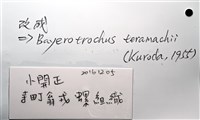 改成
⇒ Bayerotrochus teramachii
(Kuroda, 1955)
2016 12 05
小開正
寺町翁戎螺組織